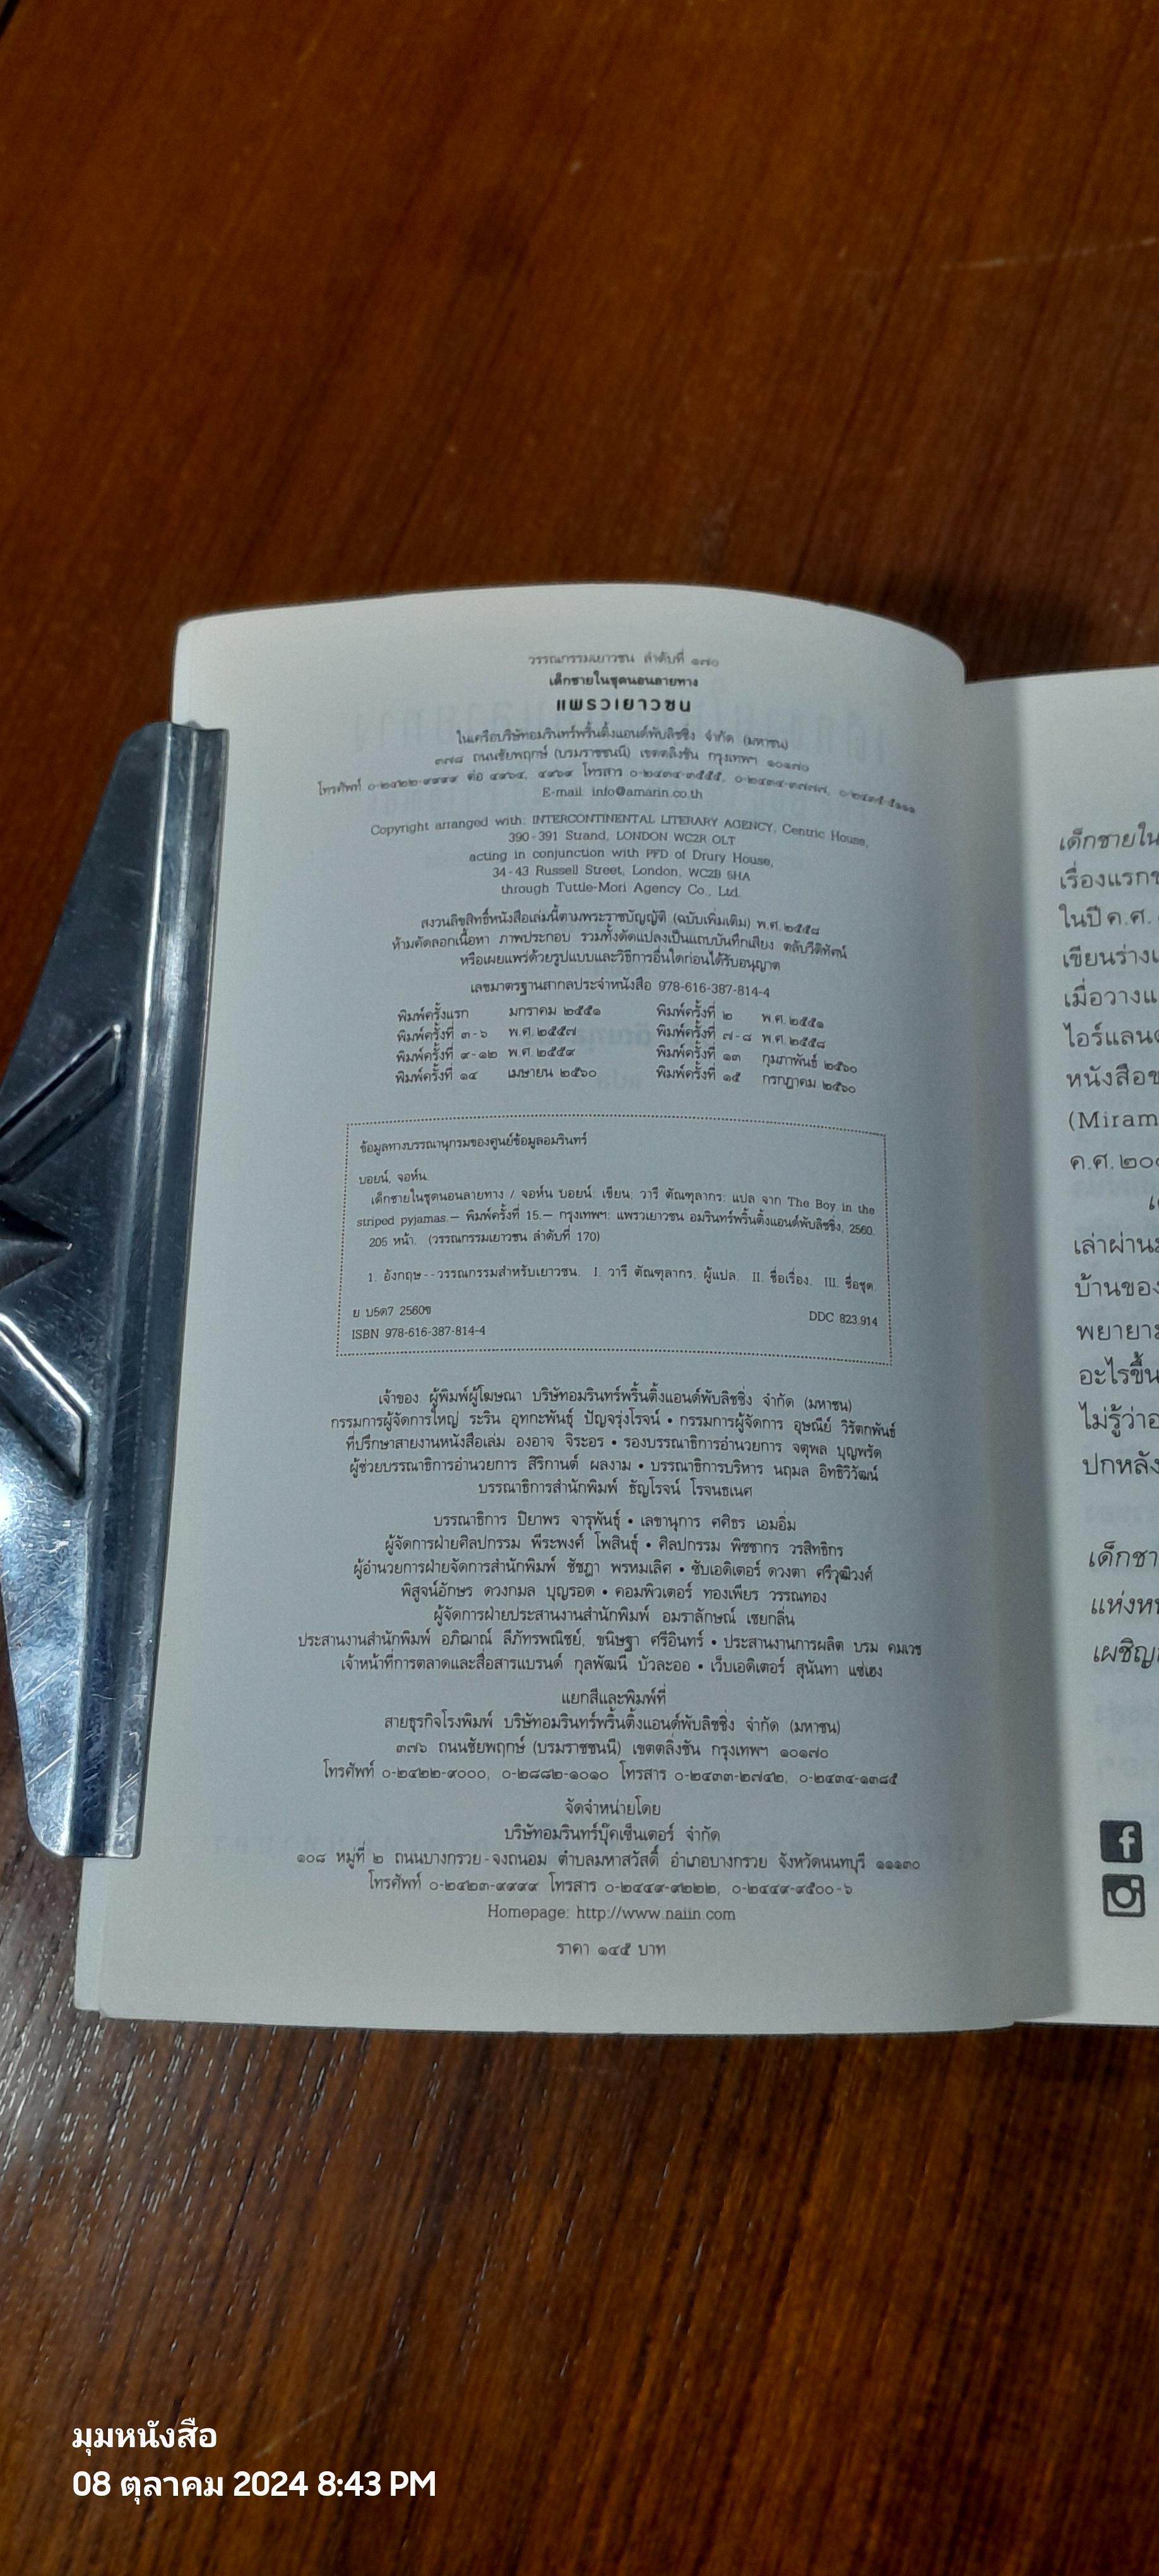 วรรณกรรมเยาวชน ลำดับที่ ๑๗๐
เด็กชายในชุดนอนลายทาง
แพรวเยาวชน
ในเครือบริษัทอมรินทร์พริ้นติ้งแอนด์พับลิชชิ่ง จำกัด (มหาชน)
๓๗๘ ถนนชัยพฤกษ์ (บรมราชชนนี) เขตตลิ่งชัน กรุงเทพฯ ๑๐๑๗๐
โทรศัพท์ ๐-๒๔๒๒-๙๙๙๙ ต่อ ๔๙๖๔, ๔๙๖๙ โทรสาร ๐-๒๔๓๔-๓๕๕๕, ๐-๒๔๓๔-๓๗๗๗,
E-mail: info@amarin.co.th
Copyright arranged with: INTERCONTINENTAL LITERARY AGENCY, Centric House,
390-391 Strand, LONDON WC2R OLT
acting in conjunction with PFD of Drury House,
34-43 Russell Street, London, WC2B 5HA
through Tuttle-Mori Agency Co., Ltd.
สงวนลิขสิทธิ์หนังสือเล่มนี้ตามพระราชบัญญัติ (ฉบับเพิ่มเติม) พ.ศ. ๒๕๕๘
ห้ามคัดลอกเนื้อหา ภาพประกอบ รวมทั้งดัดแปลงเป็นแถบบันทึกเสียง ตลับวีดิทัศน์
หรือเผยแพร่ด้วยรูปแบบและวิธีการอื่นใดก่อนได้รับอนุญาต
เลขมาตรฐานสากลประจำหนังสือ 978-616-387-814-4
พิมพ์ครั้งแรก มกราคม ๒๕๕๑ พิมพ์ครั้งที่ ๒ พ.ศ. ๒๕๕๑
พิมพ์ครั้งที่ ๓-๖ พ.ศ. ๒๕๕๗ พิมพ์ครั้งที่ ๗-๘ พ.ศ. ๒๕๕๘
พิมพ์ครั้งที่ ๙-๑๒ พ.ศ. ๒๕๕๙ พิมพ์ครั้งที่ ๑๓ กุมภาพันธ์ ๒๕๖๐
พิมพ์ครั้งที่ ๑๔ เมษายน ๒๕๖๐ พิมพ์ครั้งที่ ๑๕ กรกฎาคม ๒๕๖๐
ข้อมูลทางบรรณานุกรมของศูนย์ข้อมูลอมรินทร์
บอยน์, จอห์น.
เด็กชายในชุดนอนลายทาง / จอห์น บอยน์: เขียน; วารี ตัณฑุลากร: แปล จาก The Boy in the
striped pyjamas.— พิมพ์ครั้งที่ 15.— กรุงเทพฯ: แพรวเยาวชน อมรินทร์พริ้นติ้งแอนด์พับลิชชิ่ง, 2560.
205 หน้า. (วรรณกรรมเยาวชน ลำดับที่ 170)
1. อังกฤษ--วรรณกรรมสำหรับเยาวชน. I. วารี ตัณฑุลากร, ผู้แปล. II. ชื่อเรื่อง. III. ชื่อชุด.
ย บ5ด7 2560ข DDC 823.914
ISBN 978-616-387-814-4
เจ้าของ ผู้พิมพ์ผู้โฆษณา บริษัทอมรินทร์พริ้นติ้งแอนด์พับลิชชิ่ง จำกัด (มหาชน)
กรรมการผู้จัดการใหญ่ ระริน อุทกะพันธุ์ ปัญจรุ่งโรจน์ • กรรมการผู้จัดการ อุษณีย์ วิรัตกพันธ์
ที่ปรึกษาสายงานหนังสือเล่ม องอาจ จิระอร • รองบรรณาธิการอำนวยการ จตุพล บุญพรัด
ผู้ช่วยบรรณาธิการอำนวยการ สิริกานต์ ผลงาม • บรรณาธิการบริหาร นฤมล อิทธิวิวัฒน์
บรรณาธิการสำนักพิมพ์ ธัญโรจน์ โรจนธเนศ
บรรณาธิการ ปิยาพร จารุพันธุ์ • เลขานุการ ศศิธร เอมอิ่ม
ผู้จัดการฝ่ายศิลปกรรม พีระพงศ์ โพสินธุ์ • ศิลปกรรม พิชชากร วรสิทธิกร
ผู้อำนวยการฝ่ายจัดการสำนักพิมพ์ ชัชฎา พรหมเลิศ • ซับเอดิเตอร์ ดวงตา ศรีวุฒิวงศ์
พิสูจน์อักษร ดวงกมล บุญรอด • คอมพิวเตอร์ ทองเพียร วรรณทอง
ผู้จัดการฝ่ายประสานงานสำนักพิมพ์ อมราลักษณ์ เชยกลิ่น
ประสานงานสำนักพิมพ์ อภิฌาณ์ ลีภัทรพณิชย์, ขนิษฐา ศรีอินทร์ • ประสานงานการผลิต บรม คมเวช
เจ้าหน้าที่การตลาดและสื่อสารแบรนด์ กุลพัฒน์ บัวละออ • เว็บเอดิเตอร์ สุนันทา แซ่เฮง
แยกสีและพิมพ์ที่
สายธุรกิจโรงพิมพ์ บริษัทอมรินทร์พริ้นติ้งแอนด์พับลิชชิ่ง จำกัด (มหาชน)
๓๗๖ ถนนชัยพฤกษ์ (บรมราชชนนี) เขตตลิ่งชัน กรุงเทพฯ ๑๐๑๗๐
โทรศัพท์ ๐-๒๔๒๒-๙๐๐๐, ๐-๒๘๘๒-๑๐๑๐ โทรสาร ๐-๒๔๓๓-๒๗๔๒, ๐-๒๔๓๔-๑๓๘๕
จัดจำหน่ายโดย
บริษัทอมรินทร์บุ๊คเซ็นเตอร์ จำกัด
๑๐๘ หมู่ที่ ๒ ถนนบางกรวย-จงถนอม ตำบลมหาสวัสดิ์ อำเภอบางกรวย จังหวัดนนทบุรี ๑๑๑๓๐
โทรศัพท์ ๐-๒๔๒๓-๙๙๙๙ โทรสาร ๐-๒๔๔๙-๙๒๒๒, ๐-๒๔๔๙-๙๕๐๐-๖
Homepage: http://www.naiin.com
ราคา ๑๔๕ บาท
เด็กชายใน
เรื่องแรก
ในปี ค.ศ.
เขียนร่าง
เมื่อวาง
ไอร์แลนด์
หนังสือ
(Miram
ค.ศ. ๒๐
เล่าผ่าน
บ้านของ
พยายาม
อะไรขึ้น
ไม่รู้ว่า
ปกหลัง
เด็กชา
แห่ง
เผชิญ
มุมหนังสือ
08 ตุลาคม 2024 8:43 PM